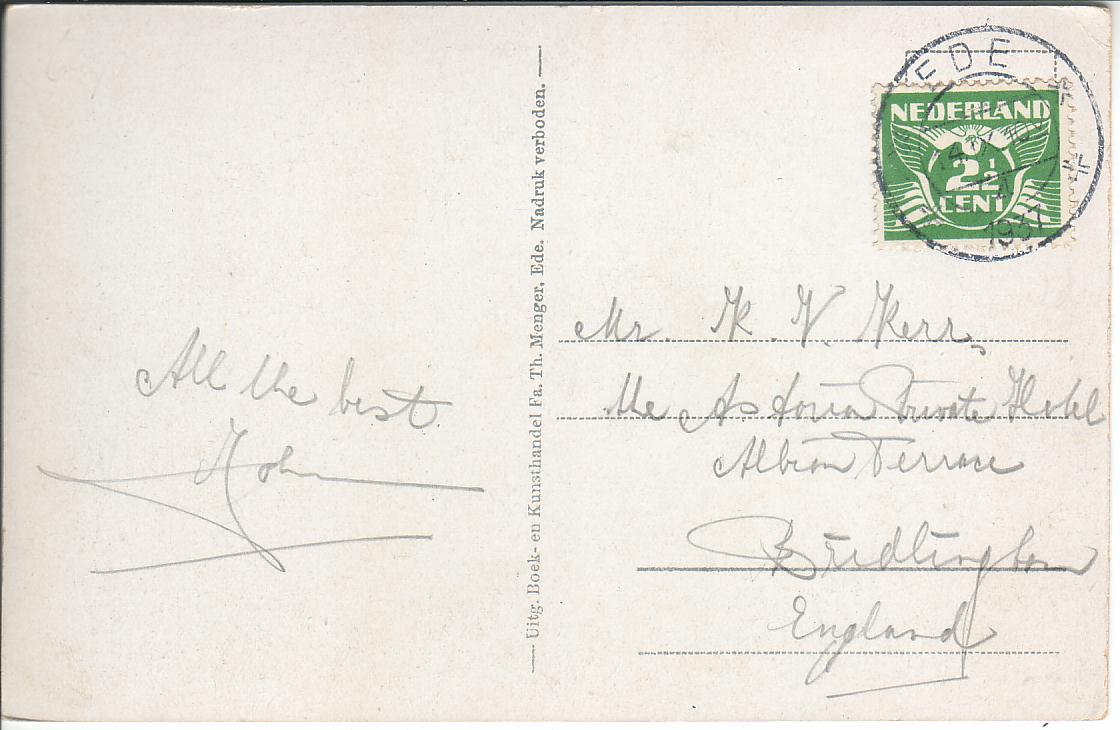 All the best
John
Uitg. Boek- en Kunsthandel Fa. Th. Menger, Ede. Nadruk verboden.
EDE
1937
NEDERLAND
2½
CENT
Mr. K. V. Kerr,
the Astoria Private Hotel
Albion Terrace
Bridlington
England